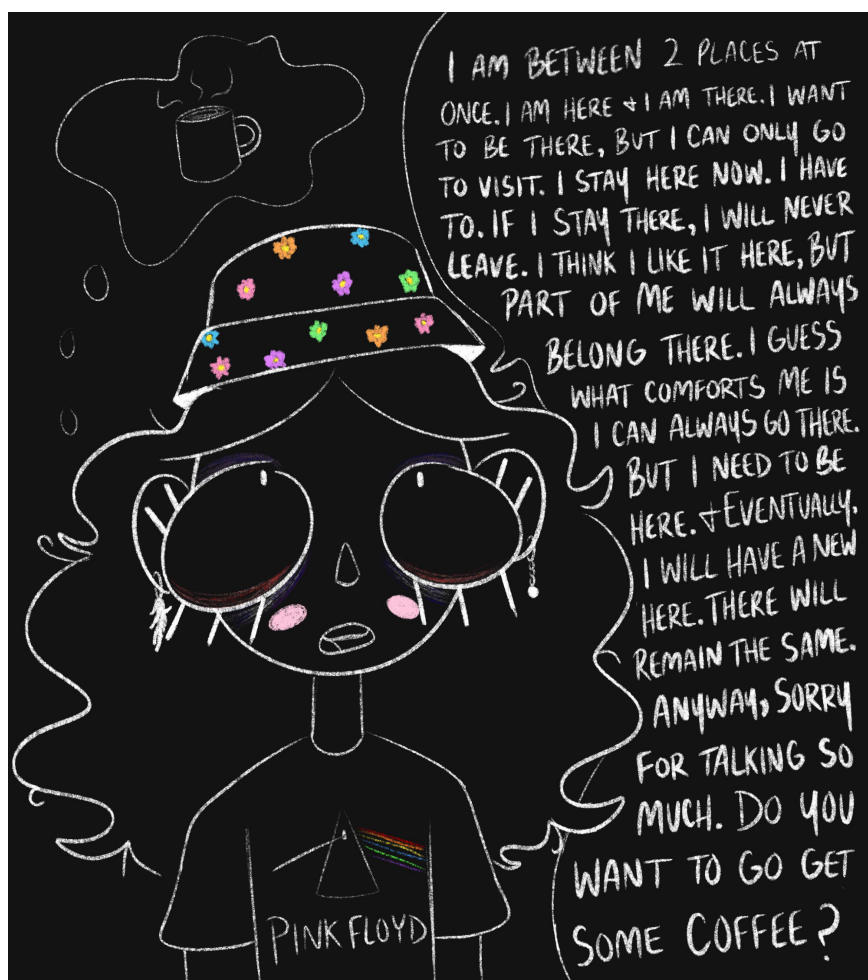 I AM BETWEEN 2 PLACES AT
ONCE. I AM HERE & I AM THERE. I WANT
TO BE THERE, BUT I CAN ONLY GO
TO VISIT. I STAY HERE NOW. I HAVE
TO. IF I STAY THERE, I WILL NEVER
LEAVE. I THINK I LIKE IT HERE, BUT
PART OF ME WILL ALWAYS
BELONG THERE. I GUESS
WHAT COMFORTS ME IS
I CAN ALWAYS GO THERE.
BUT I NEED TO BE
HERE. & EVENTUALLY,
I WILL HAVE A NEW
HERE. THERE WILL
REMAIN THE SAME.
ANYWAY, SORRY
FOR TALKING SO
MUCH. DO YOU
WANT TO GO GET
SOME COFFEE?
PINK FLOYD